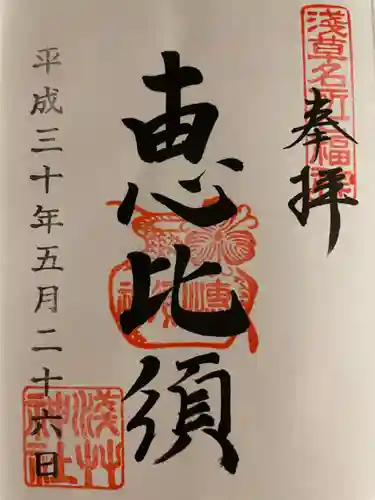 奉拝
浅草名所七福神
恵比須
平成三十年五月二十六日
浅草神社